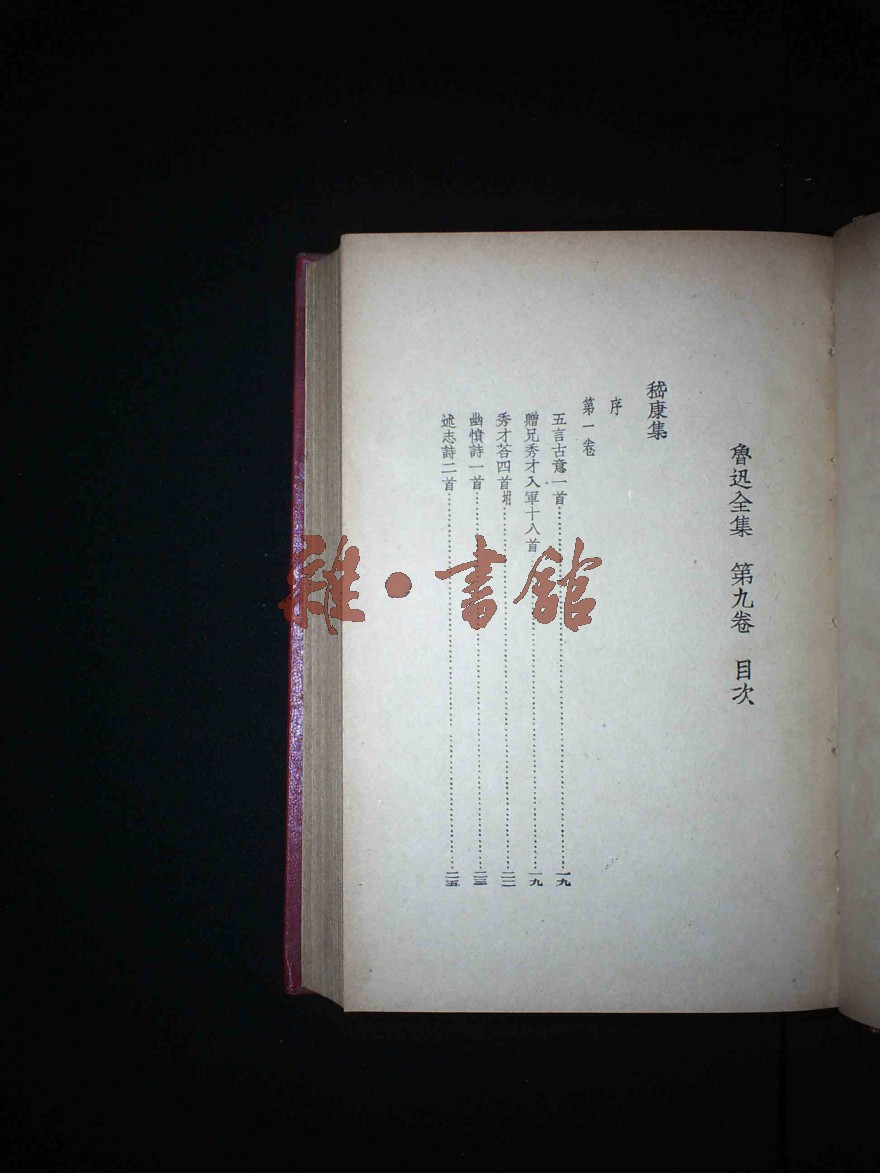 魯迅全集　第九卷　目次
嵇康集
序
第一卷
五言古意一首……一九
贈兄秀才入軍十八首……一九
秀才答四首附……二二
幽憤詩一首……二三
述志詩二首……二五
雜·書館